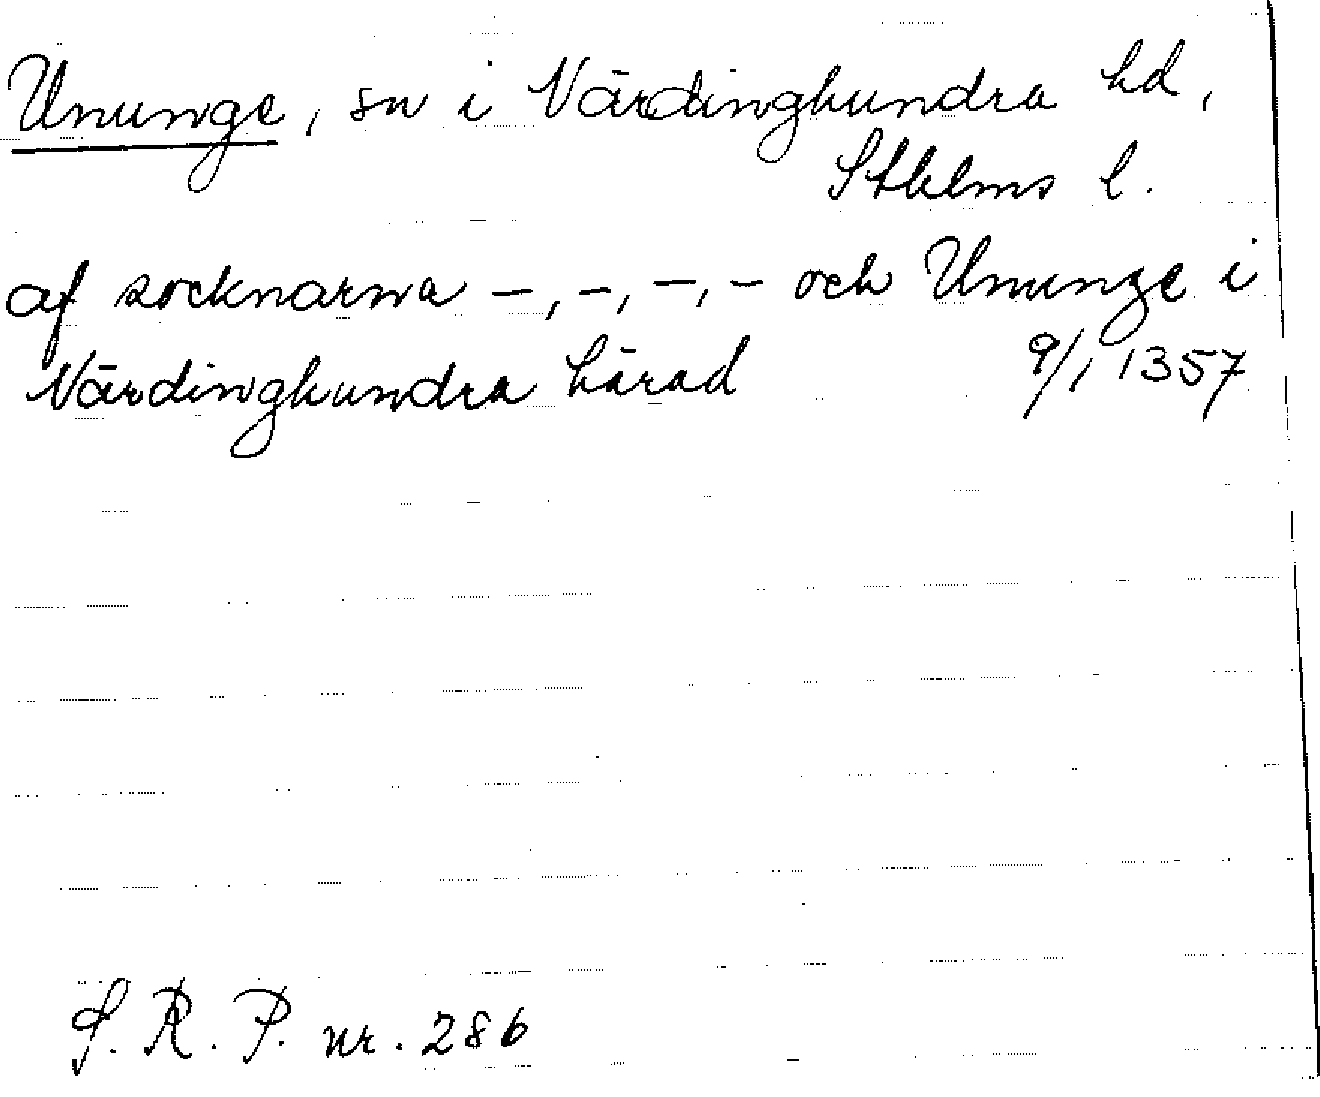 Ununge, sn i Närdinghundra hd,
Sthlms l.
af socknarna –, –, –, – och Ununge i
Närdinghundra härad 9/1 1357
S. R. P. nr. 286